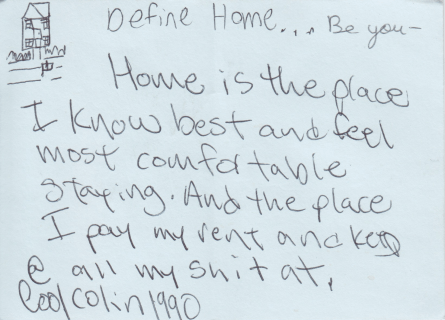 Define Home... Be you-
Home is the place
I know best and feel
most comfortable
staying. And the place
I pay my rent and keep
@ all my shit at.
CoolColin1990